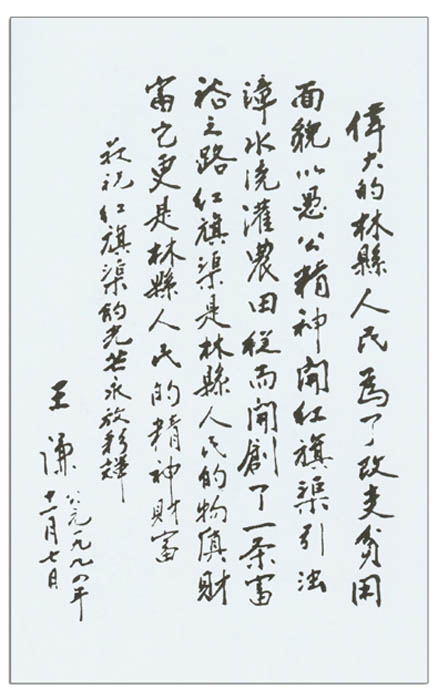 偉大的林縣人民為了改变貧困
面貌以愚公精神開红旗渠引浊
漳水浇灌農田從而開創了一条富
裕之路红旗渠是林縣人民的物質財
富它更是林縣人民的精神財富
祝红旗渠的光芒永放彩
王謙
公元一九九四年
十一月七日